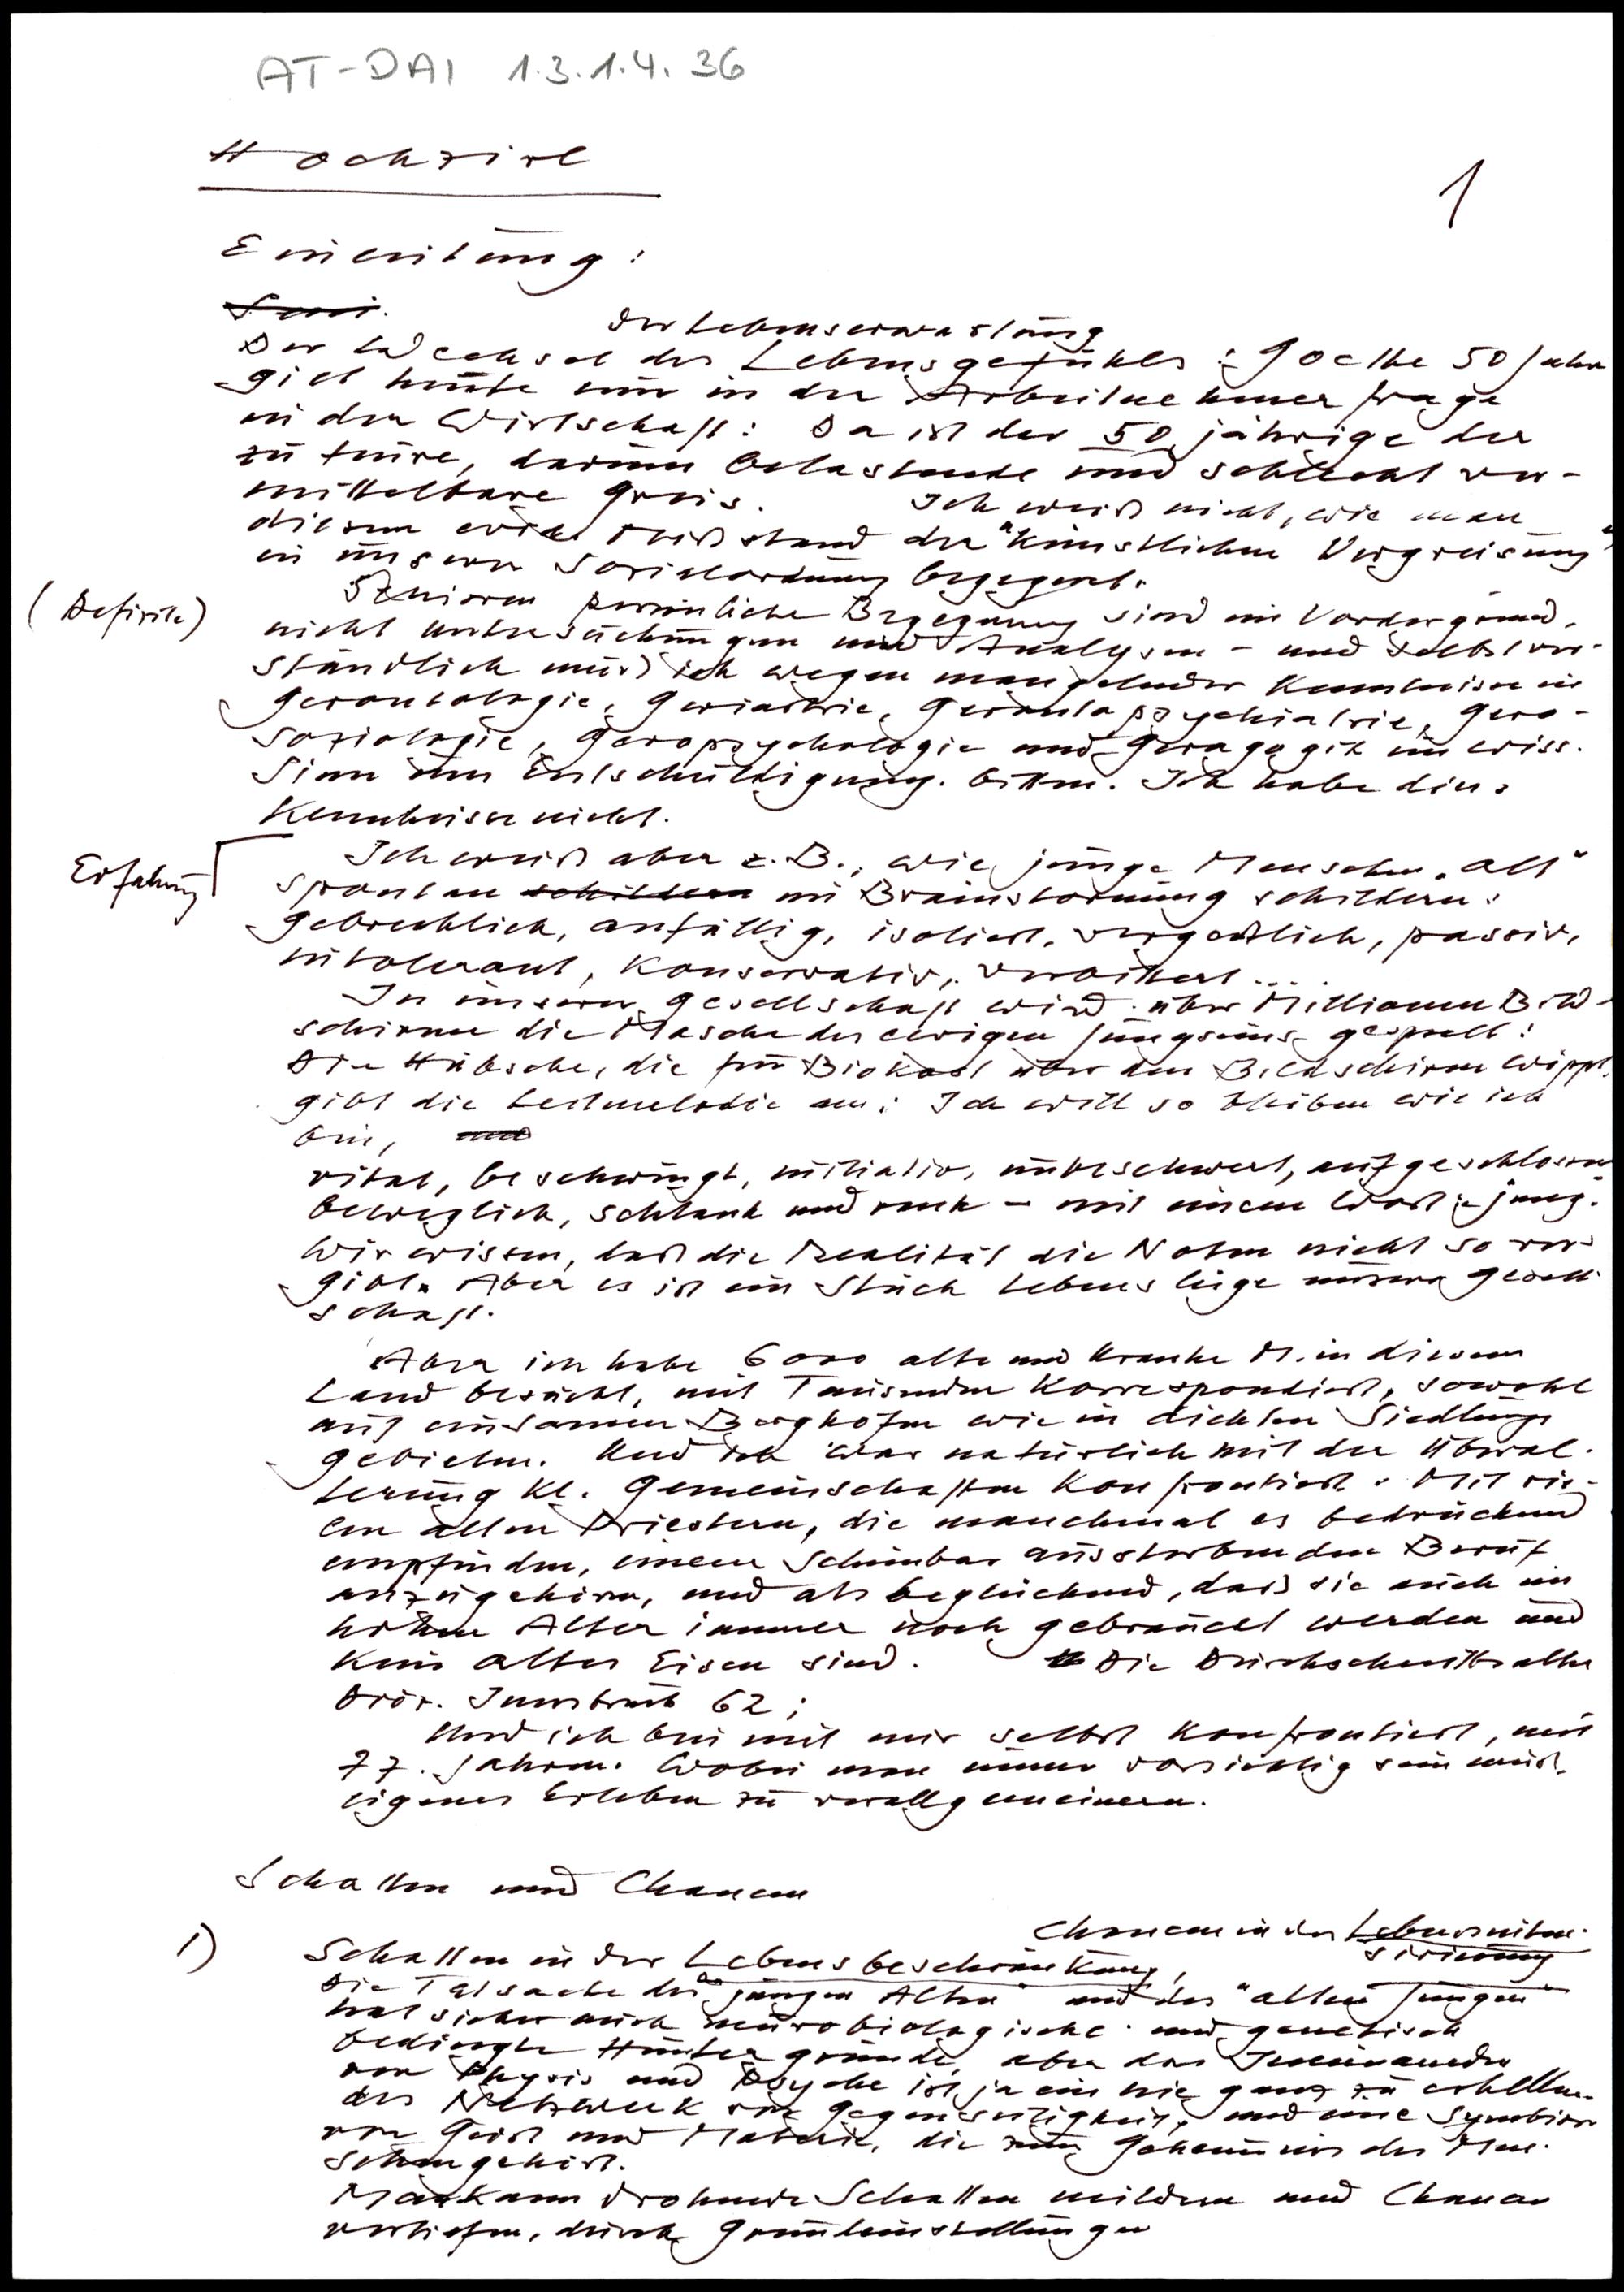 AT-DAI 1.3.1.4. 36
Hochzirl
1
Einleitung:
der Lebenserwartung
Der Wechsel des Lebensgefühles: Goethe 50 Jahre
gilt heute nur in der Arbeitnehmerfrage
in der Wirtschaft: Da ist der 50 jährige der
zu teure, darum belastende und schlecht ver-
mittelbare Greis. Ich weiß nicht, wie man
diesem Mißstand der "künstlichen Vergreisung"
in unserer Sozialordnung begegnet.
(Defizite)
Senioren persönliche Begegnung sind im Vordergrund,
nicht Untersuchungen und Analysen - und selbstver-
ständlich muß ich wegen mangelnder Kenntnisse in
Gerontologie, Geriatrie, Gerontopsychiatrie, Gero-
soziologie, Geropsychologie und Geragogik im wiss.
Sinn um Entschuldigung bitten. Ich habe diese
Kenntnisse nicht.
Erfahrung
Ich weiß aber z.B., wie junge Menschen "alt"
spontan schildern im Brainstorming schildern:
gebrechlich, anfällig, isoliert, vergeßlich, passiv,
intolerant, konservativ, verbittert ...
In unserer Gesellschaft wird über Millionen Bild-
schirme die Masche des ewigen Jungseins gespielt:
Die Hübsche, die für Biokost über den Bildschirm wippt,
gibt die Leitmelodie an: Ich will so bleiben wie ich
bin, und
vital, beschwingt, initiativ, unbeschwert, aufgeschlossen
beweglich, schlank und rank - mit einem Wort: "jung".
Wir wissen, daß die Realität die Noten nicht so ver-
gibt. Aber es ist ein Stück Lebenslüge unserer Gesell-
schaft.
Aber ich habe 6000 alte und kranke M. in diesem
Land besucht, mit Tausenden korrespondiert, sowohl
auf einsamen Berghöfen wie in dichten Siedlungs
gebieten. Und ich war natürlich mit der Überal-
terung kl. Gemeinschaften konfrontiert. Mit vie-
len alten Priestern, die manchmal es bedrückend
empfinden, einem scheinbar aussterbenden Beruf
anzugehören, und als beglückend, daß sie auch im
hohen Alter immer noch gebraucht werden und
kein altes Eisen sind. Die Durchschnittsalter
Diöz. Innsbruck 62;
Und ich bin mit mir selbst konfrontiert, mit
77. Jahren. Wobei man immer vorsichtig sein muß,
eigenes Erleben zu verallgemeinern.
Schatten und Chancen
Chancen in der Lebensinten-
sivierung
1) Schatten in der Lebensbeschränkung,
Die Tatsache der "jungen Alten" und der "alten Jungen"
hat sicher auch neurobiologische und genetisch
bedingte Hintergründe, aber das Ineinander
von Physis und Psyche ist ja ein nie ganz zu erhellen-
des Netzwerk von Gegenseitigkeit, und eine Symbiose
von Geist und Materie, die zum Geheimnis des Men-
schen gehört.
Man kann drohende Schatten mildern und Chancen
vertiefen, durch Grundeinstellungen